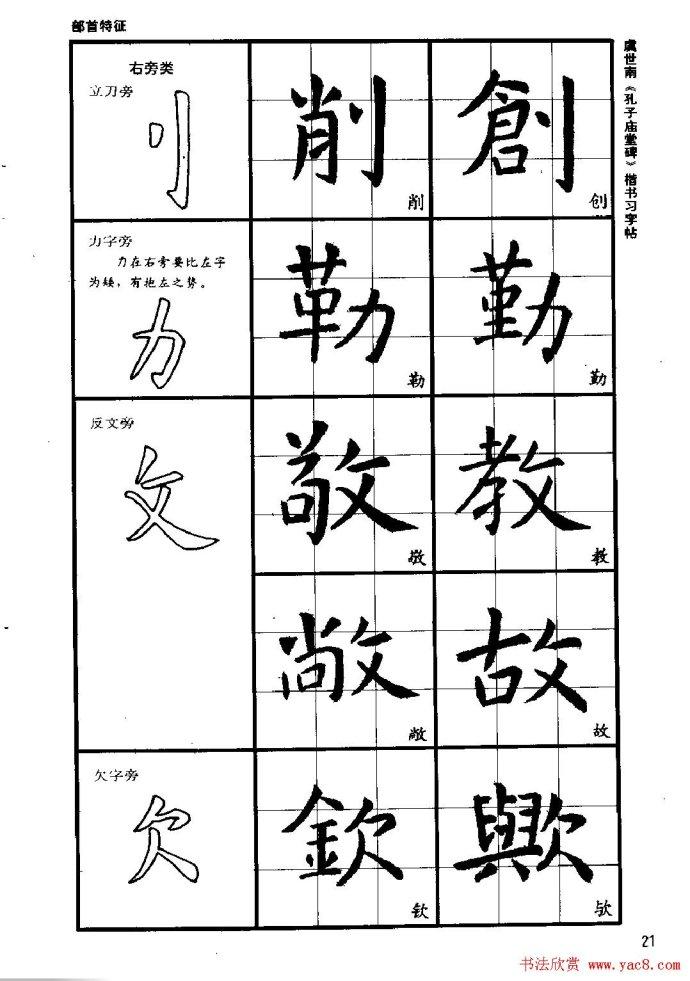 部首特征
虞世南《孔子庙堂碑》楷书习字帖
右旁类
立刀旁
刂
削
削
創
创
力字旁
力在右旁要比左字
为矮，有抱左之势。
力
勒
勒
勤
勤
反文旁
攵
敬
敬
教
教
敞
敞
故
故
欠字旁
欠
欽
钦
歟
欤
21
书法欣赏 www.yac8.com